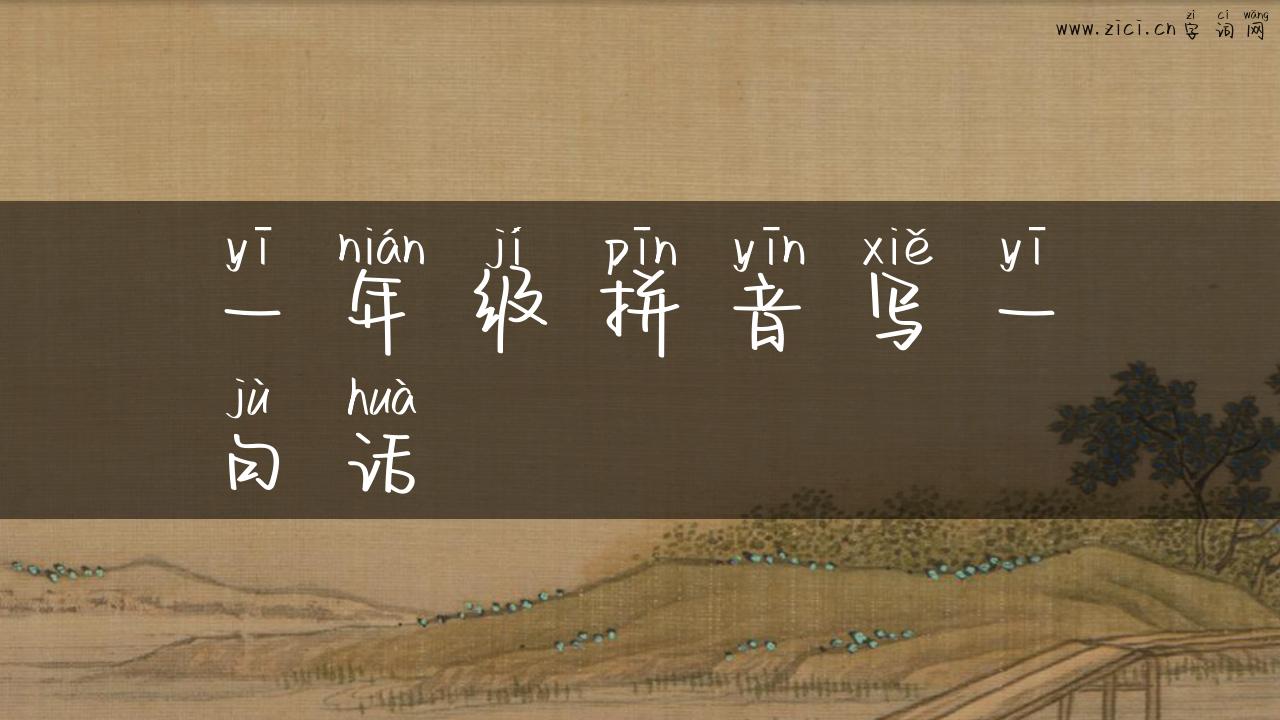 zì cí wǎng
www.zici.cn 字 词 网
yī nián jí pīn yīn xiě yī
一 年 级 拼 音 写 一
jù huà
句 话